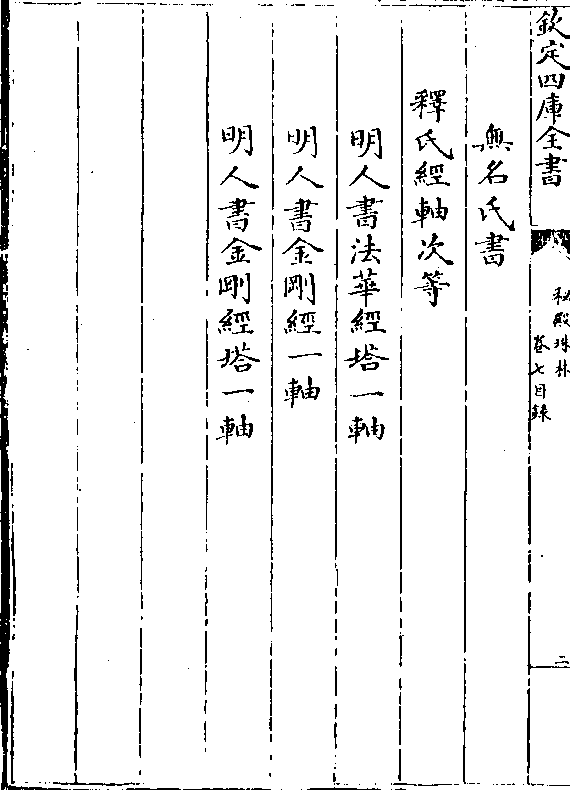 欽定四庫全書
秘殿珠林
卷七目錄
二
無名氏書
釋氏經軸次等
明人書法華經塔一軸
明人書金剛經一軸
明人書金剛經塔一軸